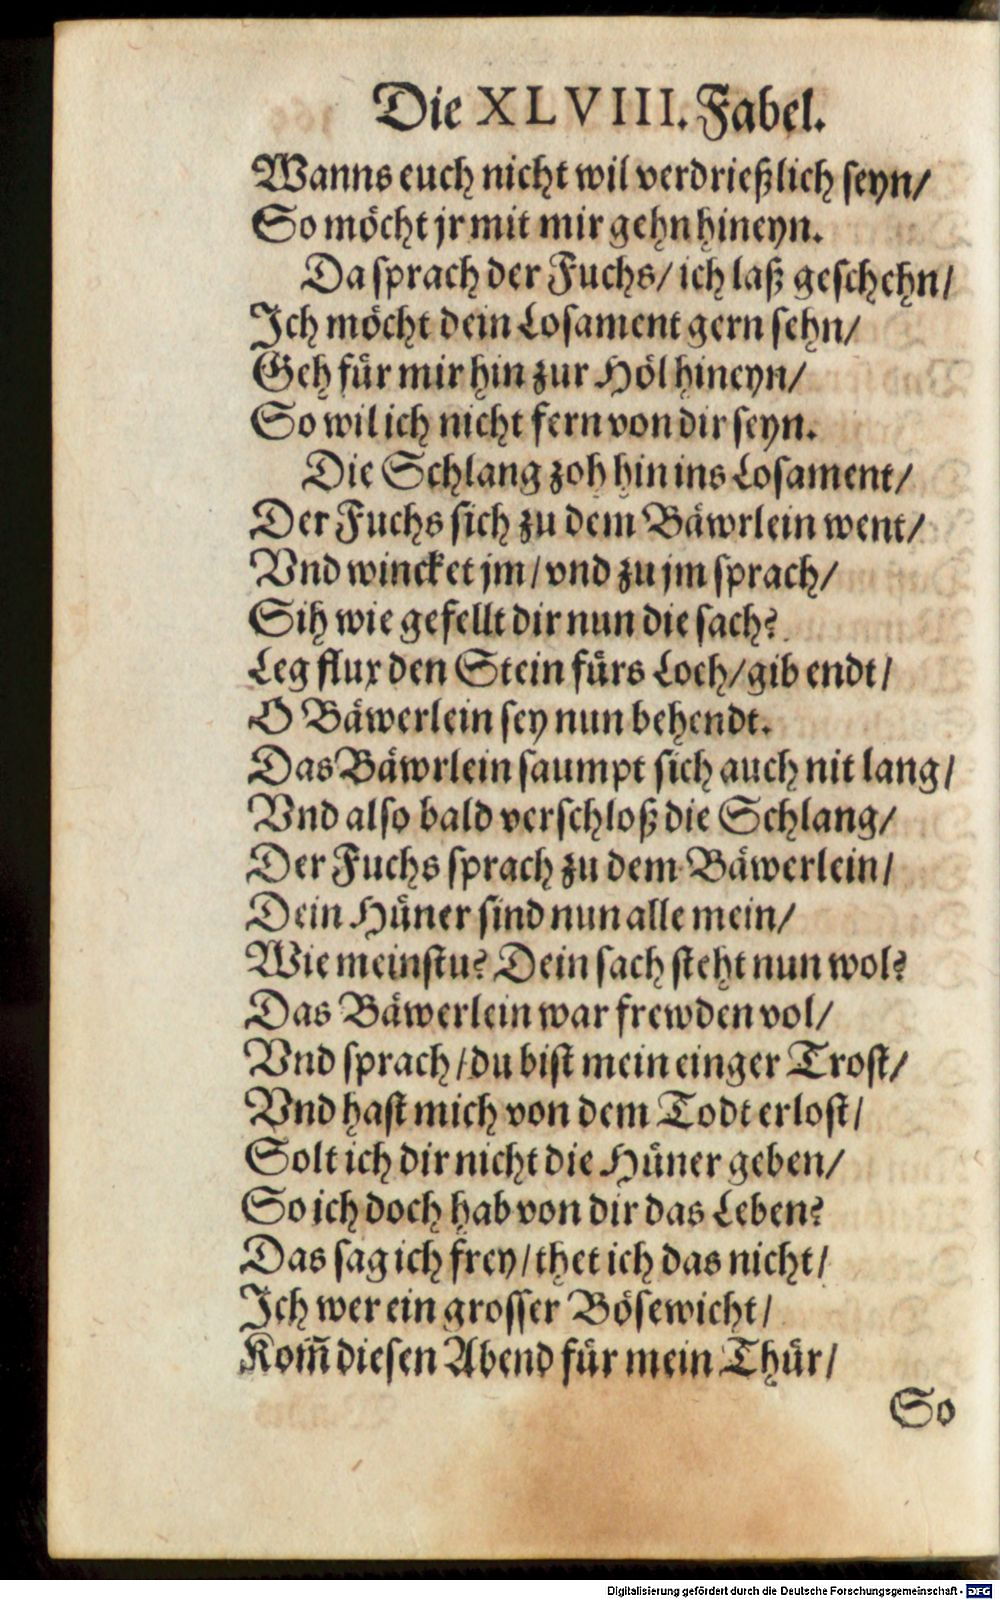 Die XLVIII. Fabel.
Wanns euch nicht wil verdrießlich seyn/
So möcht jr mit mir gehn hineyn.
Da sprach der Fuchs/ ich laß geschehn/
Ich möcht dein Losament gern sehn/
Geh für mir hin zur Höl hineyn/
So wil ich nicht fern von dir seyn.
Die Schlang zoh hin ins Losament/
Der Fuchs sich zu dem Bäwrlein went/
Vnd wincket jm/ vnd zu jm sprach/
Sih wie gefellt dir nun die sach?
Leg flux den Stein fürs Loch/ gib endt/
O Bäwerlein sey nun behendt.
Das Bäwrlein saumpt sich auch nit lang/
Vnd also bald verschloß die Schlang/
Der Fuchs sprach zu dem Bäwerlein/
Dein Hüner sind nun alle mein/
Wie meinstu? Dein sach steht nun wol?
Das Bäwerlein war frewden vol/
Vnd sprach/ du bist mein einger Trost/
Vnd hast mich von dem Todt erlost/
Solt ich dir nicht die Hüner geben/
So ich doch hab von dir das Leben?
Das sag ich frey/ thet ich das nicht/
Ich wer ein grosser Bösewicht/
Kom̃ diesen Abend für mein Thür/
So
Digitalisierung gefördert durch die Deutsche Forschungsgemeinschaft - DFG